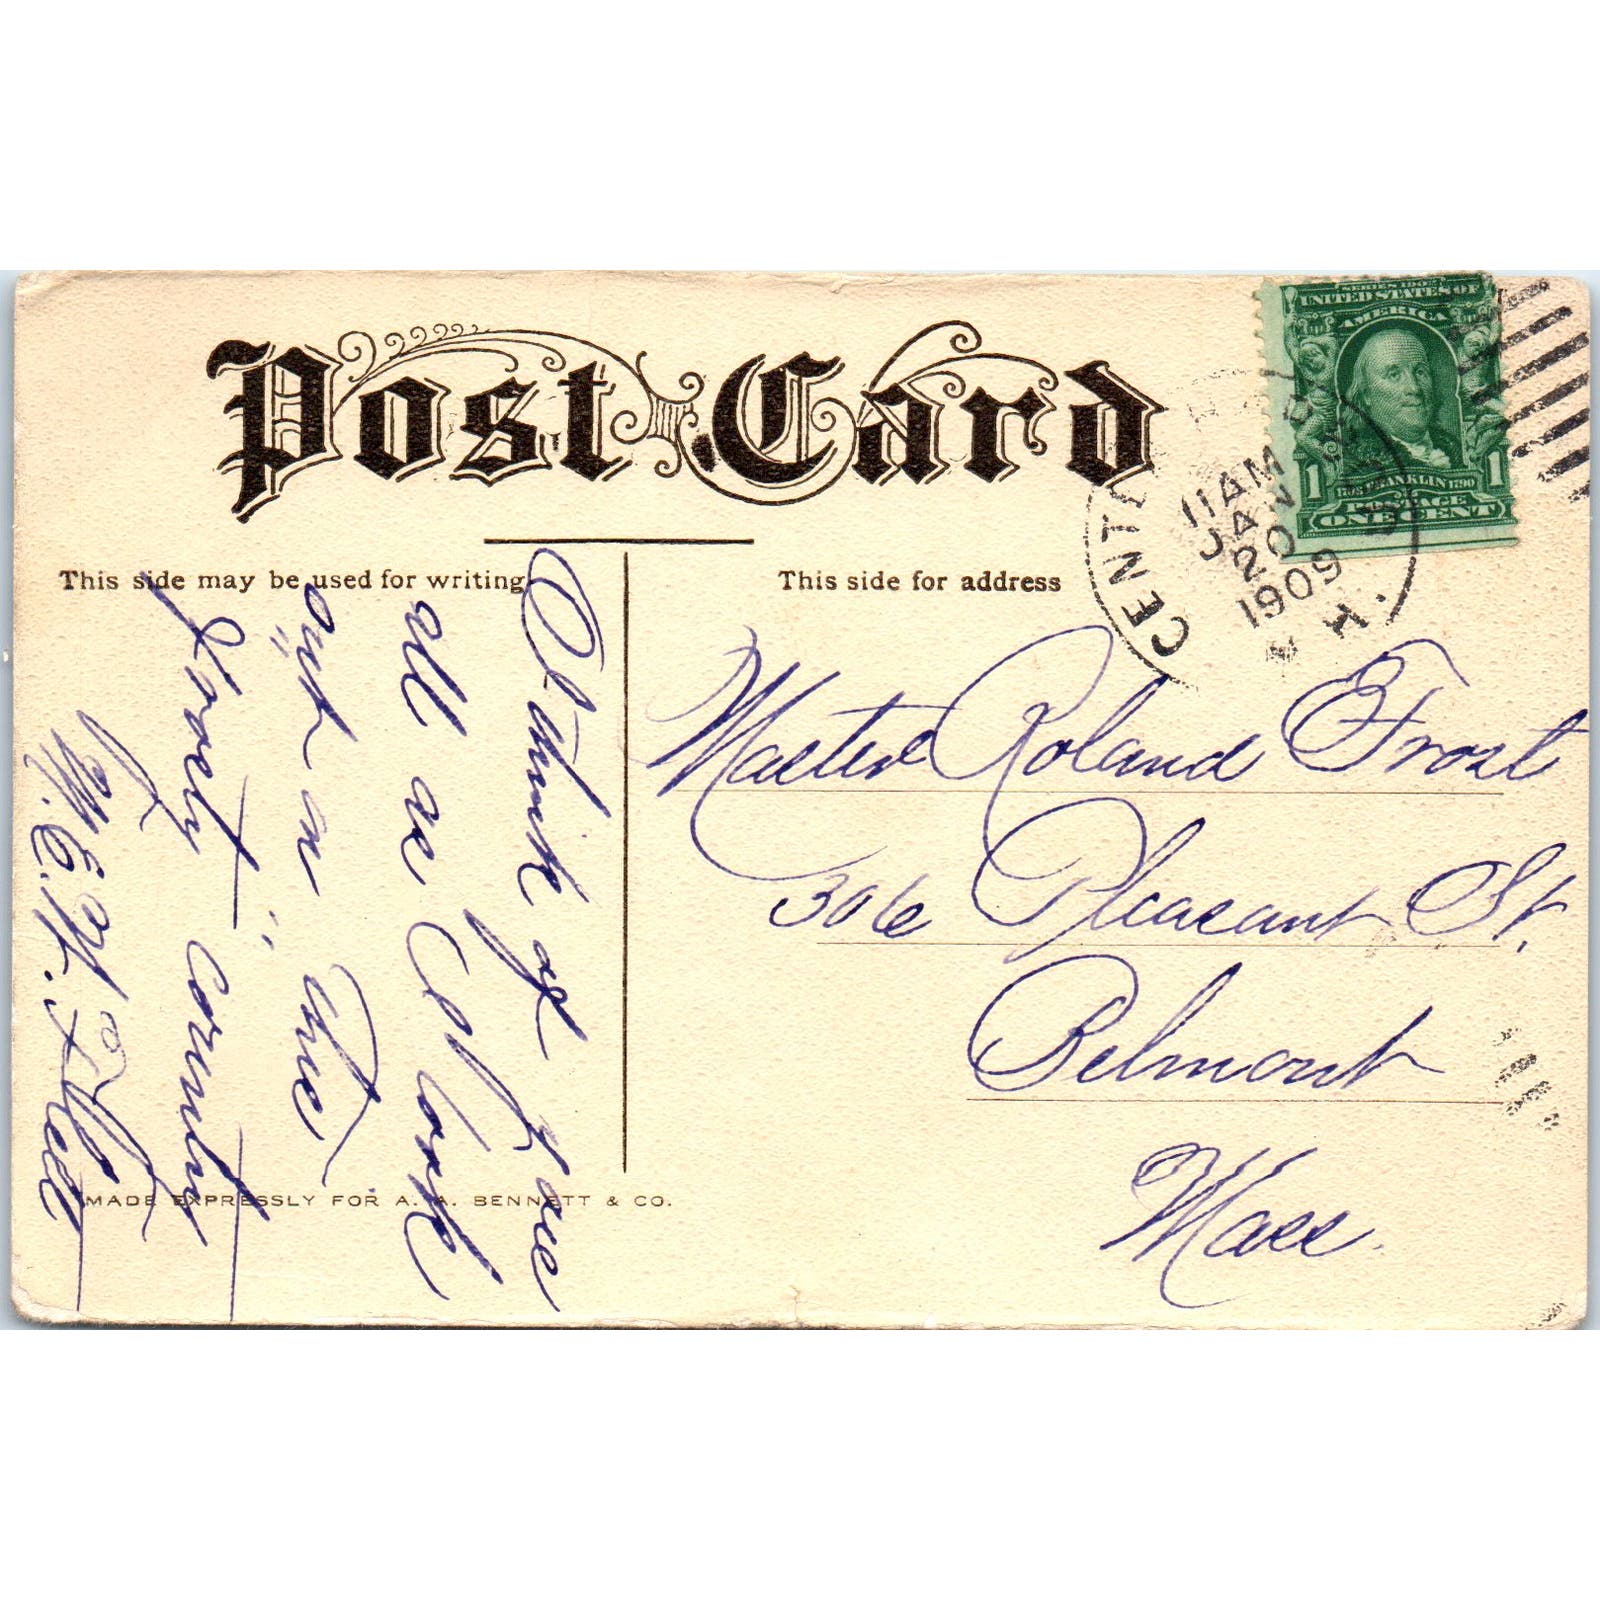 Post Card
This side may be used for writing
This side for address
SERIES 1902
UNITED STATES OF
AMERICA
1 FRANKLIN 1790 1
POSTAGE
ONE CENT
CENTER
11 AM
JAN
20
1909
N.H.
I think of you
all as I look
out in the
"frosty" country
M.E.H. Fleet
Master Roland Frost
306 Pleasant St.
Belmont
Mass.
MADE EXPRESSLY FOR A. A. BENNETT & CO.